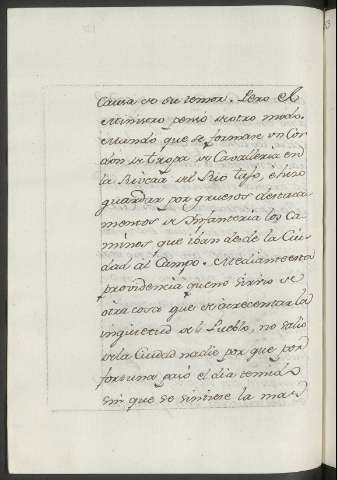 causa de su temor. Pero el
Ministro pensó de otro modo.
Mandó que se formase un Cor
don de tropa de Cavalleria en
la Rivera del Rio tajo, è hizo
guardar por gruesos destaca-
mentos de Infanteria los Ca-
minos que iban desde la Ciu-
dad al Campo. Mediante esta
providencia que no sirvio de
otra cosa que de acrecentar la
inquietud del Pueblo, no salio
de la Ciudad nadie por que por
fortuna pasó el dia temido
sin que se sintiese la mas